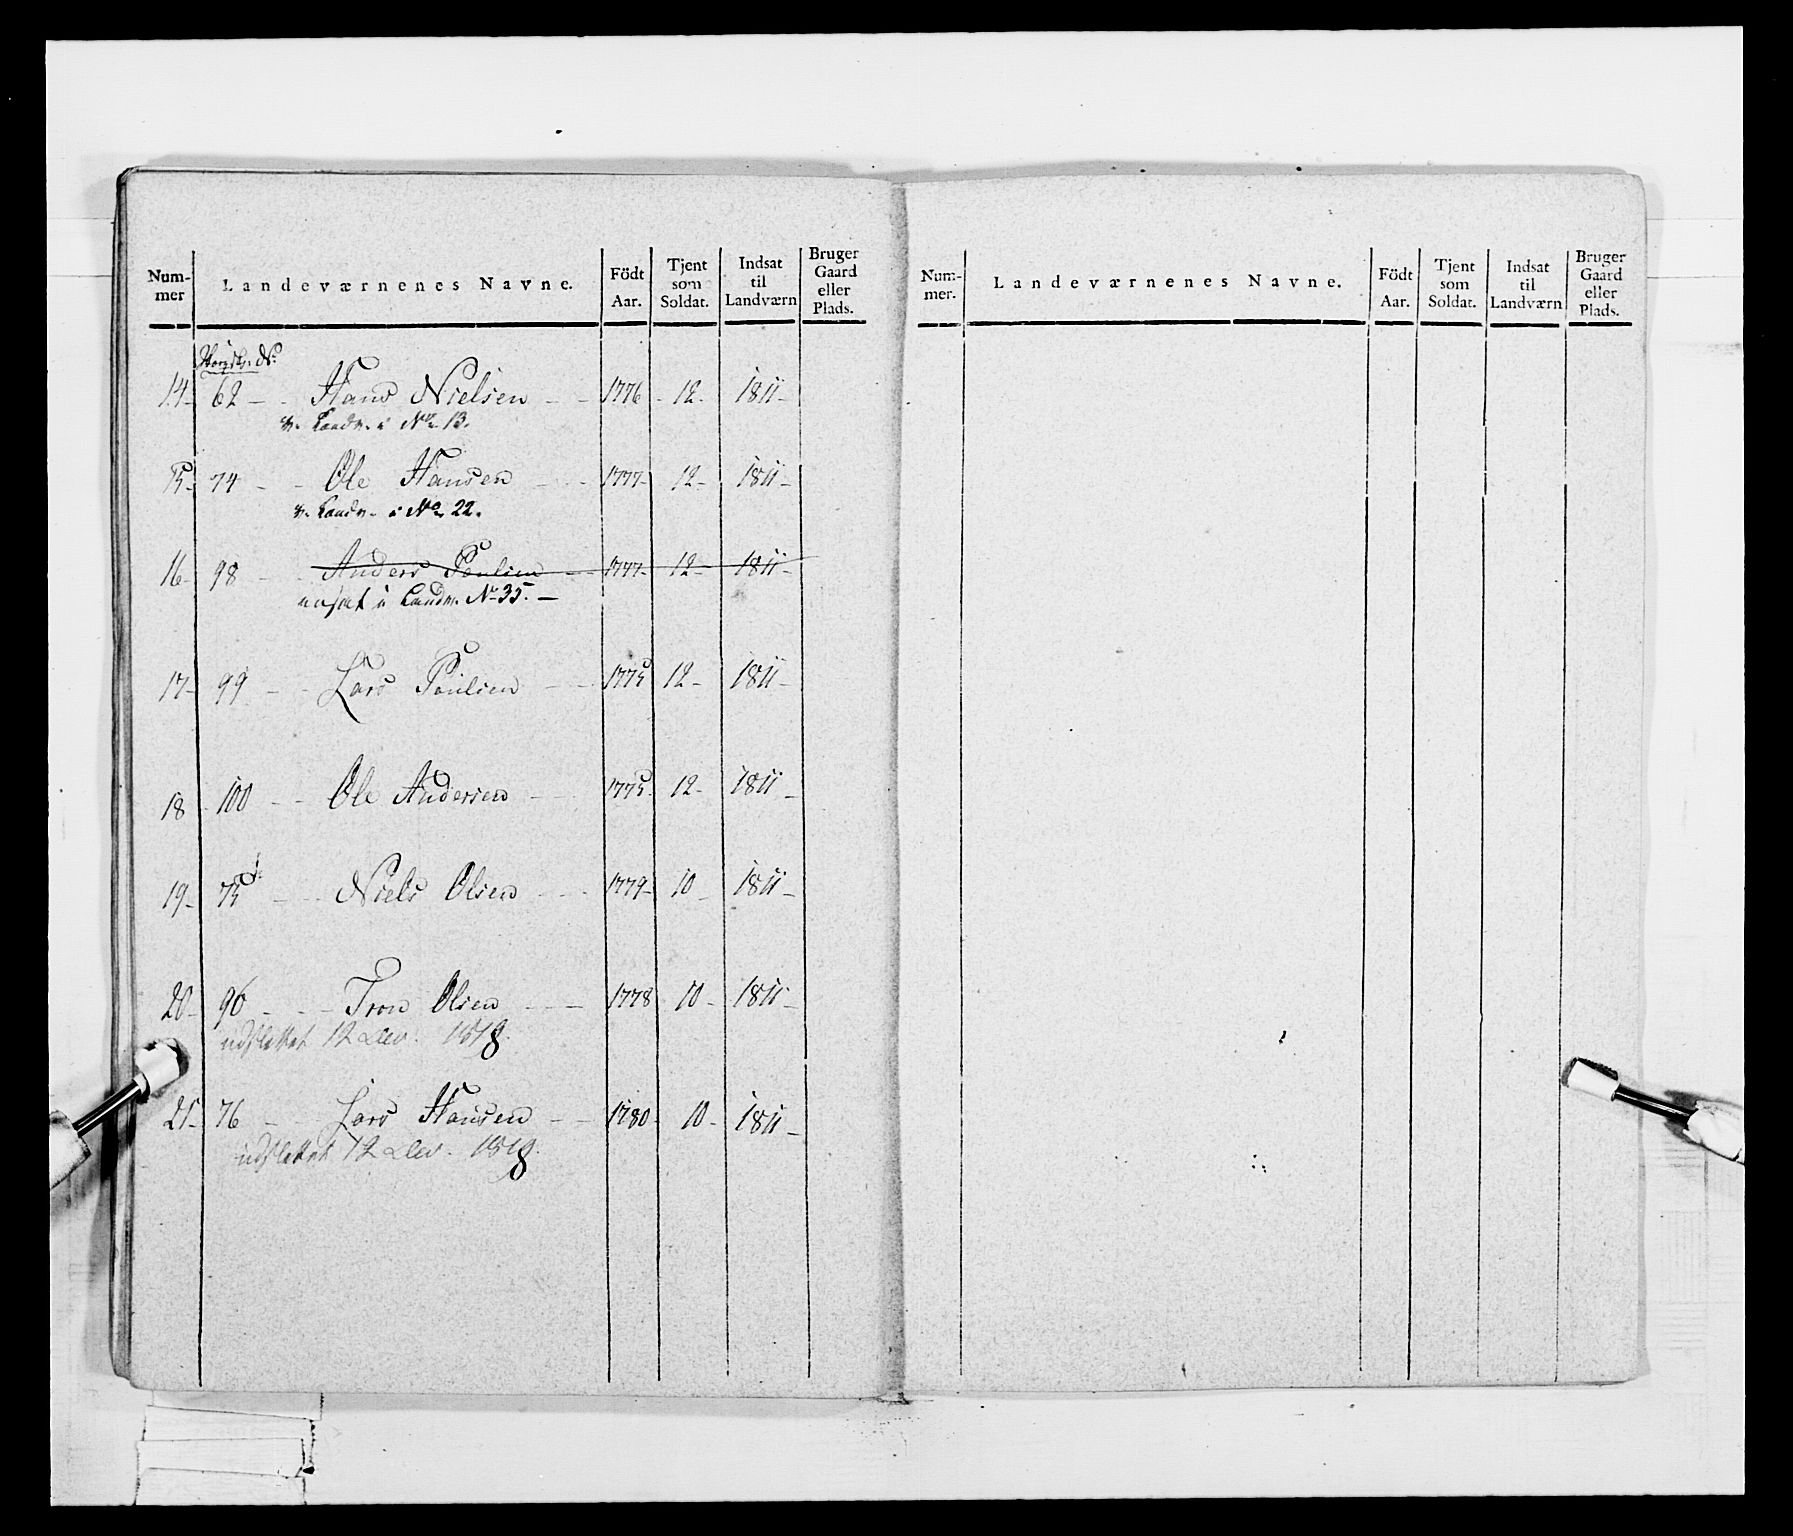 Num-
mer
Landeværnenes Navne.
Födt
Aar.
Tjent
som
Soldat.
Indsat
til
Landværn
Bruger
Gaard
eller
Plads.
14 - 62 - - Hans Nielsen - - 1776 - 12 - 1811 -
v. Landv. i No 13.
15 - 74 - - Ole Hansen - - 1777 - 12 - 1811 -
v. Landv. i No 22.
16 - 98 - - Anders Poulsen - - 1777 - 12 - 1811 -
ansat i Landv. No 35. -
17 - 99 - - Lars Poulsen - - 1775 12 - 1811 -
18 - 100 - - Ole Andersen - - 1775 - 12 - 1811 -
19 - 75 - - Niels Olsen - - 1779 - 10 - 1811 -
20 - 96 - - Tron Olsen - - 1778 10 - 1811 -
udslettet 12 Dec. 1818.
21 - 76 - - Lars Hansen - - 1780 - 10 - 1811 -
udslettet 12 Dec. 1818.
Num-
mer.
Landeværnenes Navne.
Födt
Aar.
Tjent
som
Soldat.
Indsat
til
Landværn
Bruger
Gaard
eller
Plads.